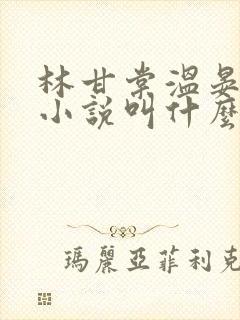 林甘棠溫晏
小說叫什麼
瑪麗亞菲利克